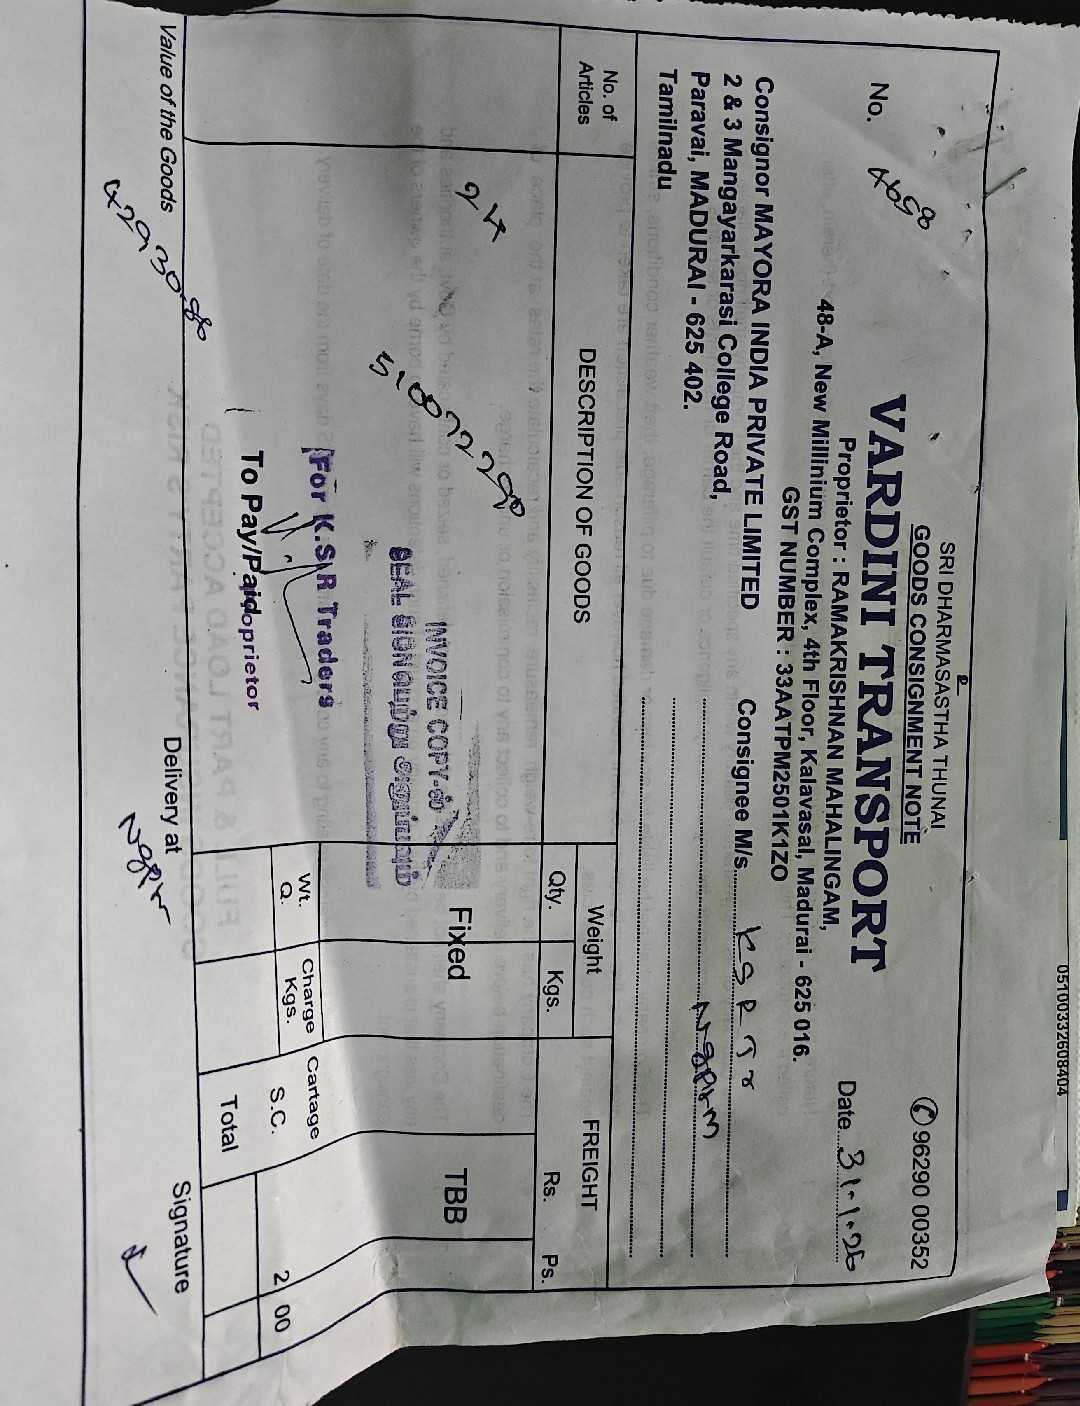 051003332608404
SRI DHARMASASTHA THUNAI
GOODS CONSIGNMENT NOTE
✆ 96290 00352
VARDINI TRANSPORT
No. 4658
Proprietor : RAMAKRISHNAN MAHALINGAM,
Date 31.1.26
48-A, New Millinium Complex, 4th Floor, Kalavasal, Madurai - 625 016.
GST NUMBER : 33AATPM2501K1ZO
Consignor MAYORA INDIA PRIVATE LIMITED
Consignee M/s. KSRTr
2 & 3 Mangayarkarasi College Road,
Paravai, MADURAI - 625 402.
Ngprm
Tamilnadu
No. of Articles
DESCRIPTION OF GOODS
Weight
FREIGHT
Qty. Kgs.
Rs. Ps.
24
510072290
Fixed
TBB
INVOICE COPY-ல்
SEAL SIGN
For K.S.R Traders
To Pay/Paid
Proprietor
Wt. Q.
Charge Kgs.
Cartage
S.C. 2 00
Total
Value of the Goods 42930.80
Delivery at Ngprm
Signature